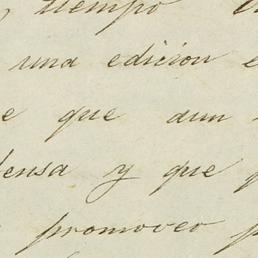 tiempo
una edicion e
e que aun
ensa y que
promover p